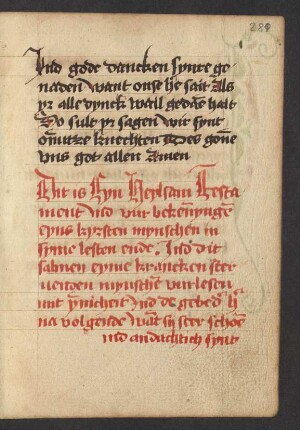 289
Ind gode dancken synre ge
naden want onse he sait Als
yr alle dynck wall gedaē hait
So sult yr sagen wir synt
onnutze knechten Des gōne
vns got allen Amen
Dit is Eyn Heylsam Testa
ment Ind vur bekennyngē
eyns kyrsten mynschen in
syme lesten ende. Ind dit
salmen eyme krancken ster
uenden mynschē vur lesen
mit ynnicheit Ind de gebed h
na volgende wāt sy seer schoē
ind andachtich synt